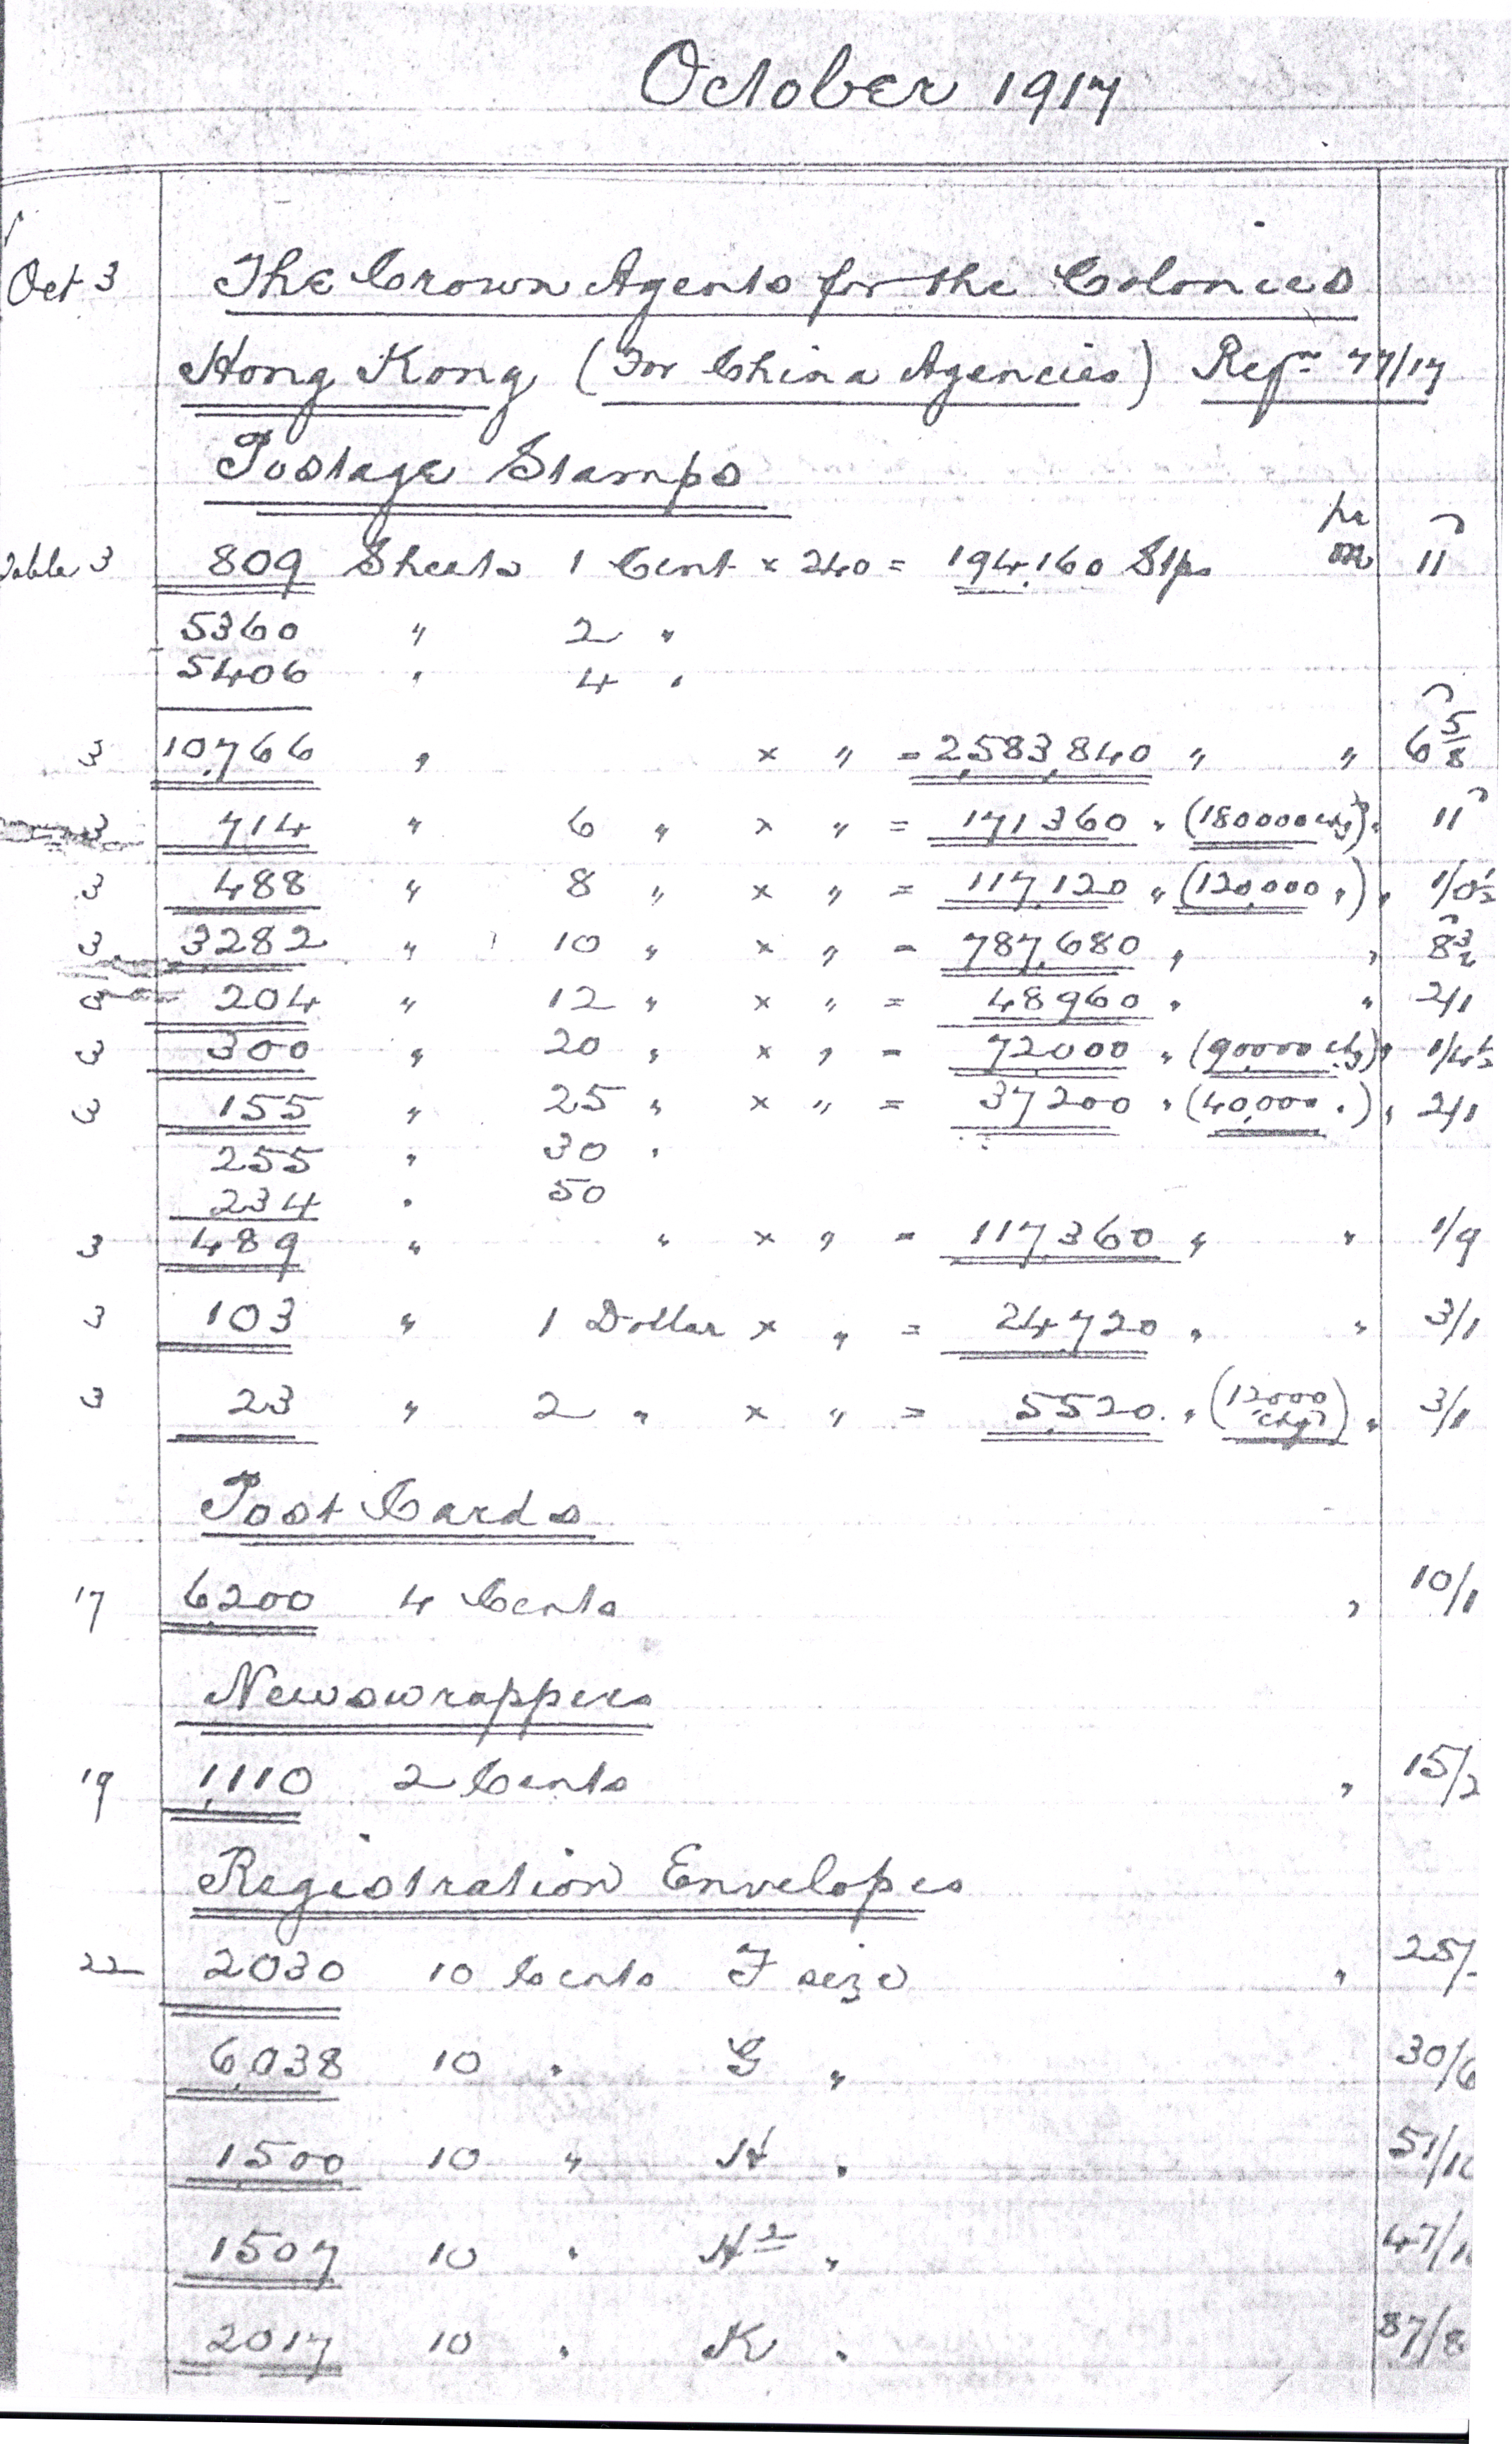 October 1917
Oct 3 The Crown Agents for the Colonies
Hong Kong (For China Agencies) Reqn 77/17
Postage Stamps
Table 3 809 Sheets 1 Cent × 240 = 194,160 Stps per m 11
5360 " 2 "
5406 " 4 "
3 10,766 " × " = 2,583,840 " " 6 5/8
3 714 " 6 " × " = 171360 " (180000 chg) " 11
3 488 " 8 " × " = 117,120 " (120,000 ") " 1/0½
3 3282 " 10 " × " = 787,680 " " 8¾
3 204 " 12 " × " = 48960 " " 2/1
3 300 " 20 " × " = 72000 " (90,000 chg) " 1/4½
3 155 " 25 " × " = 37200 " (40,000 ") " 2/1
255 " 30 "
234 " 50
3 489 " " × " = 117,360 " " 1/9
3 103 " 1 Dollar × " = 24,720 " " 3/1
3 23 " 2 " × " = 5,520 " (12000 chgd) " 3/1
Post Cards
17 6,200 4 Cents " 10/1
Newswrappers
19 1,110 2 Cents " 15/2
Registration Envelopes
22 2030 10 Cents F size " 25/-
6,038 10 " G " 30/6
1,500 10 " H " 51/10
1507 10 " H2 " 47/1
2017 10 " K " 87/8